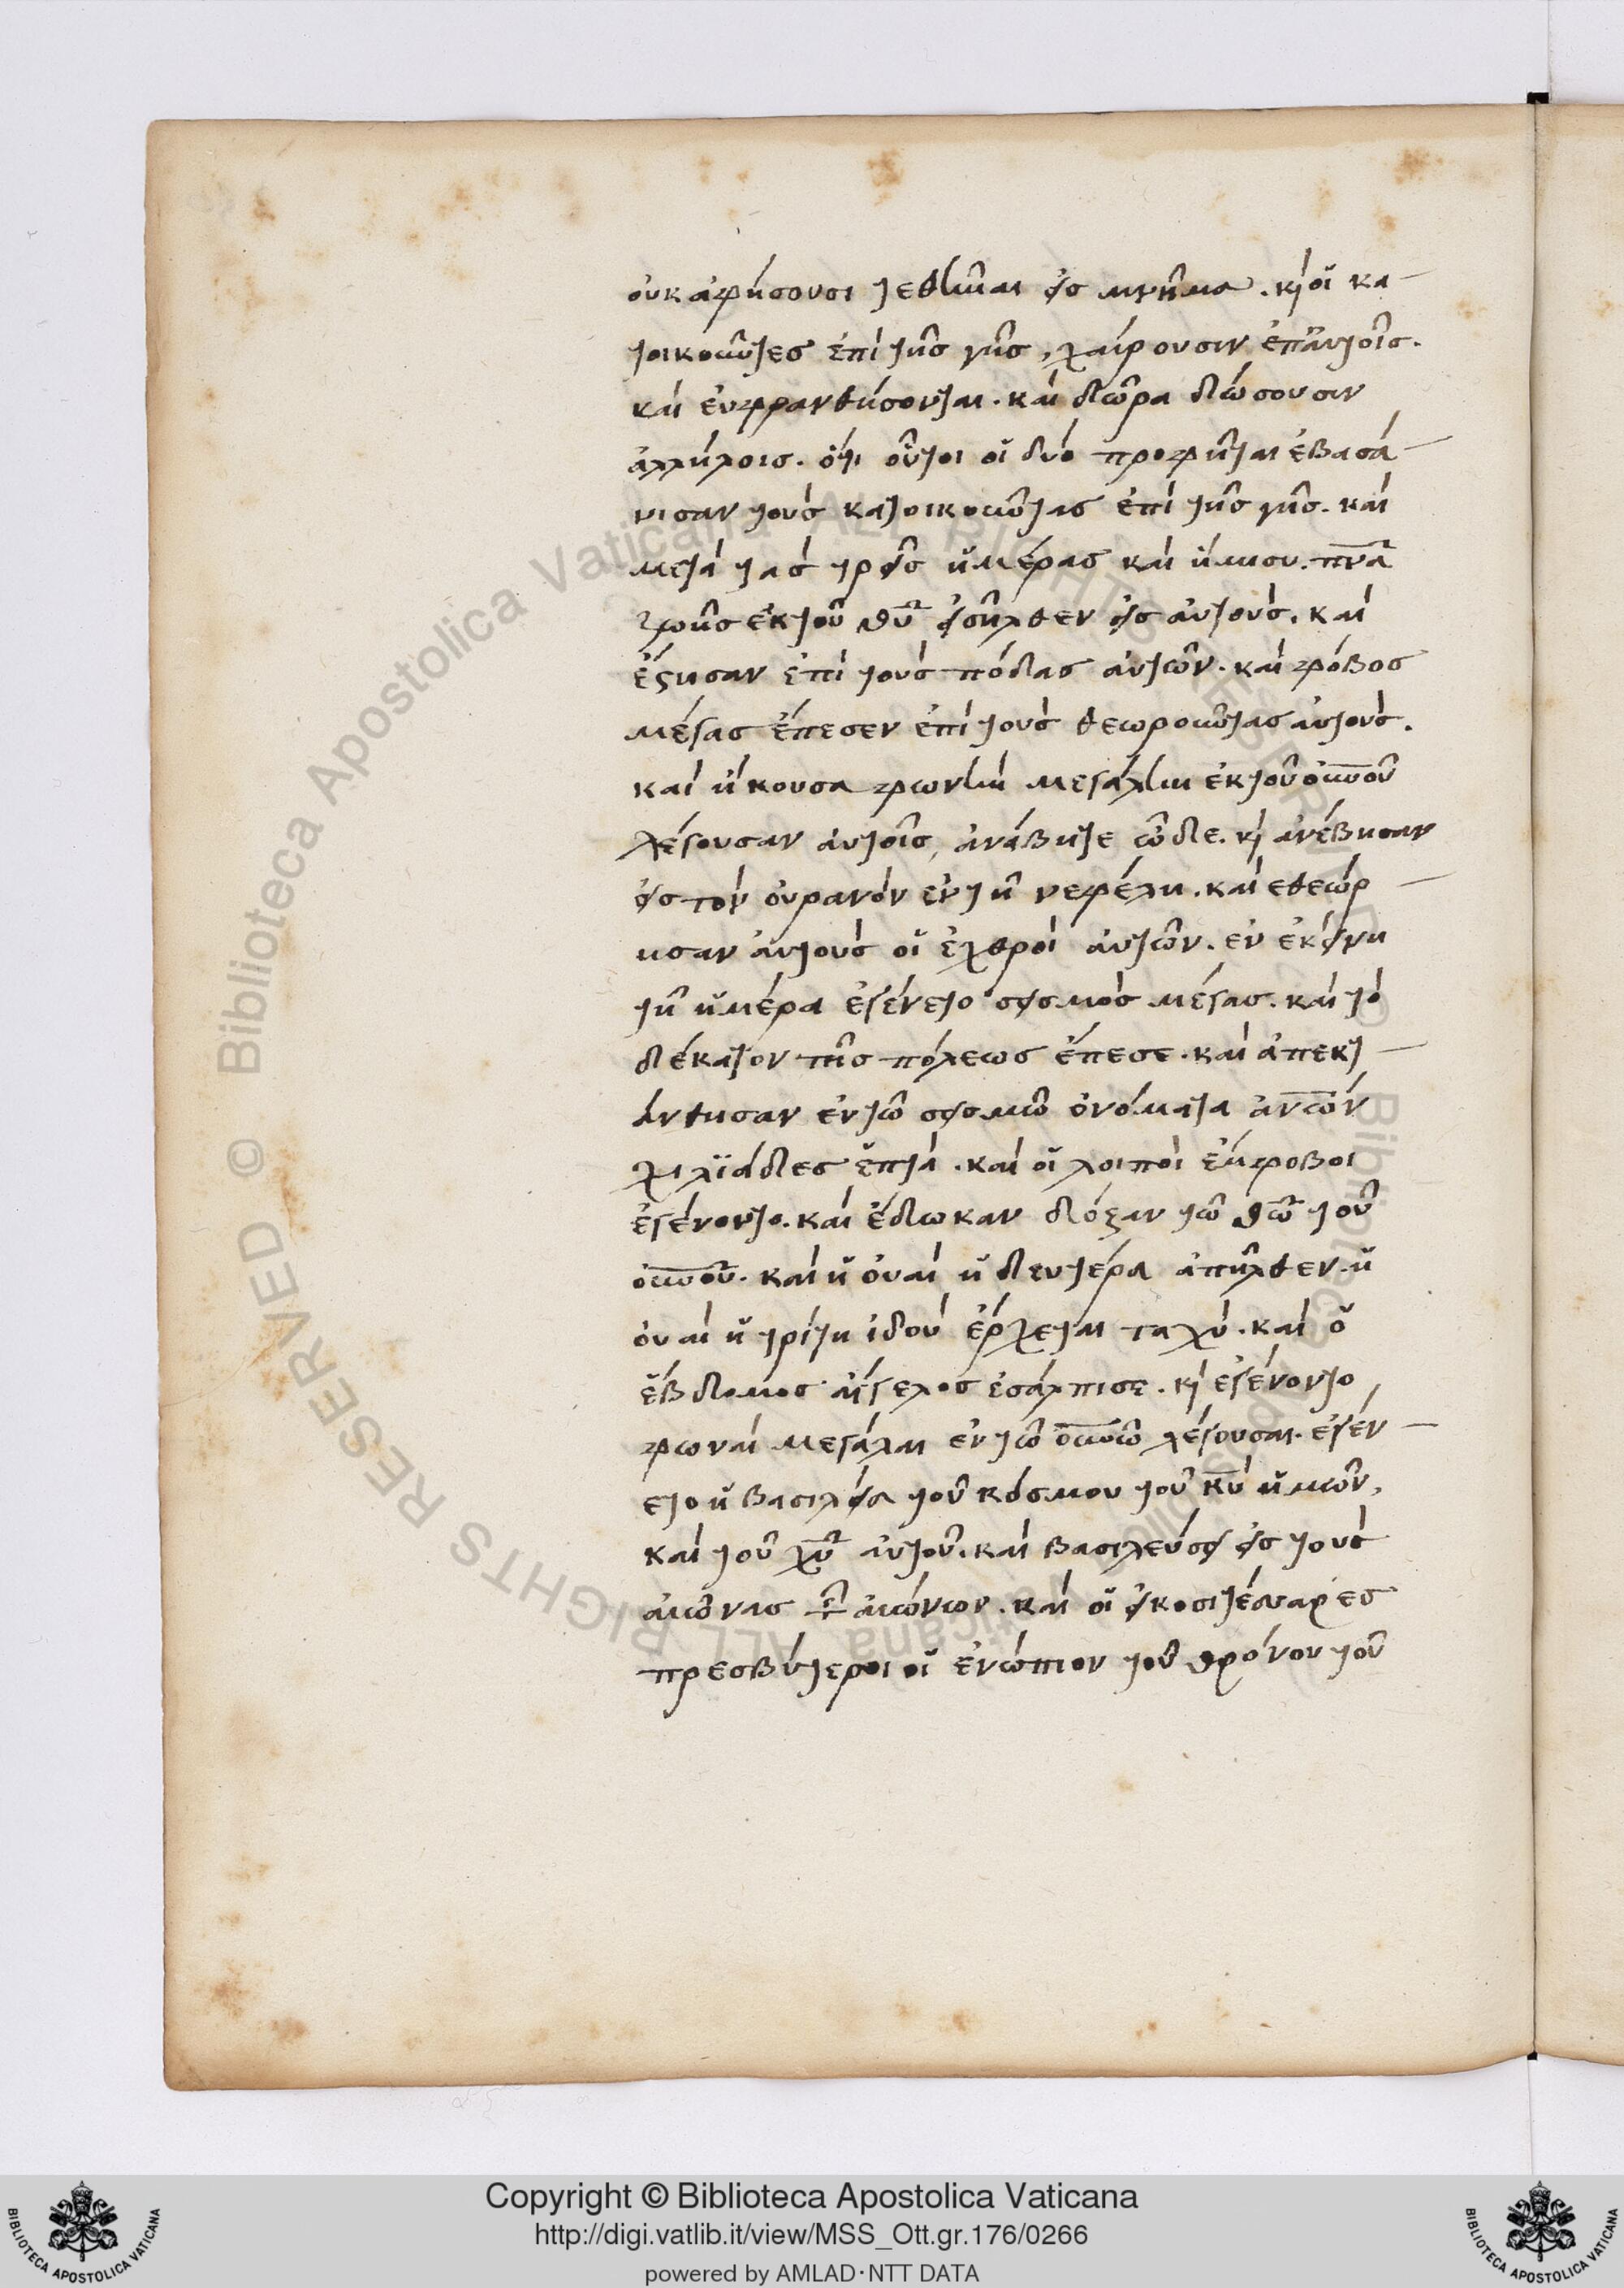 οὐκ ἀφήσουσι τεθῆναι εἰς μνῆμα. κ(αὶ) οἱ κα-
τοικοῦντες ἐπὶ τῆς γῆς, χαίρουσιν ἐπ' αὐτοῖς.
καὶ εὐφρανθήσονται. καὶ δῶρα δώσουσιν
ἀλλήλοις. ὅτι οὗτοι οἱ δύο προφῆται ἐβασά-
νισαν τοὺς κατοικοῦντας ἐπὶ τῆς γῆς. καὶ
μετὰ τὰς τρεῖς ἡμέρας καὶ ἥμισυ. πνα
ζωῆς ἐκ τοῦ θυ εἰσῆλθεν εἰς αὐτούς. καὶ
ἔστησαν ἐπὶ τοὺς πόδας αὐτῶν. καὶ φόβος
μέγας ἔπεσεν ἐπὶ τοὺς θεωροῦντας αὐτούς.
καὶ ἤκουσα φωνὴν μεγάλην ἐκ τοῦ οὐνοῦ
λέγουσαν αὐτοῖς, ἀνάβητε ὧδε. κ(αὶ) ἀνέβησαν
εἰς τὸν οὐρανὸν ἐν τῇ νεφέλη. καὶ εθεώρ-
ησαν αὐτοὺς οἱ ἐχθροὶ αὐτῶν. ἐν ἐκείνη
τῇ ἡμέρα ἐγένετο σεισμὸς μέγας. καὶ τὸ
δέκατον τῆς πόλεως ἔπεσε. καὶ ἀπεκτ-
άνθησαν ἐν τῶ σεισμῶ ὀνόματα ἀνῶν
χιλϊάδες ἑπτά. καὶ οἱ λοιποὶ ἔμφοβοι
ἐγένοντο. καὶ ἔδωκαν δόξαν τῶ θῶ τοῦ
οὐνοῦ. καὶ ἡ οὐαὶ ἡ δευτέρα ἀπῆλθεν. ἡ
οὐαὶ ἡ τρίτη ἰδοὺ ἔρχεται ταχύ. καὶ ὁ
ἕβδομος ἄγγελος ἐσάλπισε. κ(αὶ) ἐγένοντο
φωναὶ μεγάλαι ἐν τῶ οὐνῶ λέγουσαι. ἐγέν-
ετο ἡ βασιλεία τοῦ κόσμου τοῦ κυ ἡμῶν,
καὶ τοῦ χυ αὐτοῦ. καὶ βασιλεύσει εἰς τοὺς
αἰῶνας τῶν αἰώνων. καὶ οἱ εἰκοσιτέσσαρες
πρεσβύτεροι οἱ ἐνώπιον τοῦ θρόνου τοῦ
Copyright © Biblioteca Apostolica Vaticana
http://digi.vatlib.it/view/MSS_Ott.gr.176/0266
powered by AMLAD·NTT DATA
BIBLIOTECA APOSTOLICA VATICANA
BIBLIOTECA APOSTOLICA VATICANA
© Biblioteca Apostolica Vaticana ALL RIGHTS RESERVED
© Biblioteca Apostolica Vaticana ALL RIGHTS RESERVED